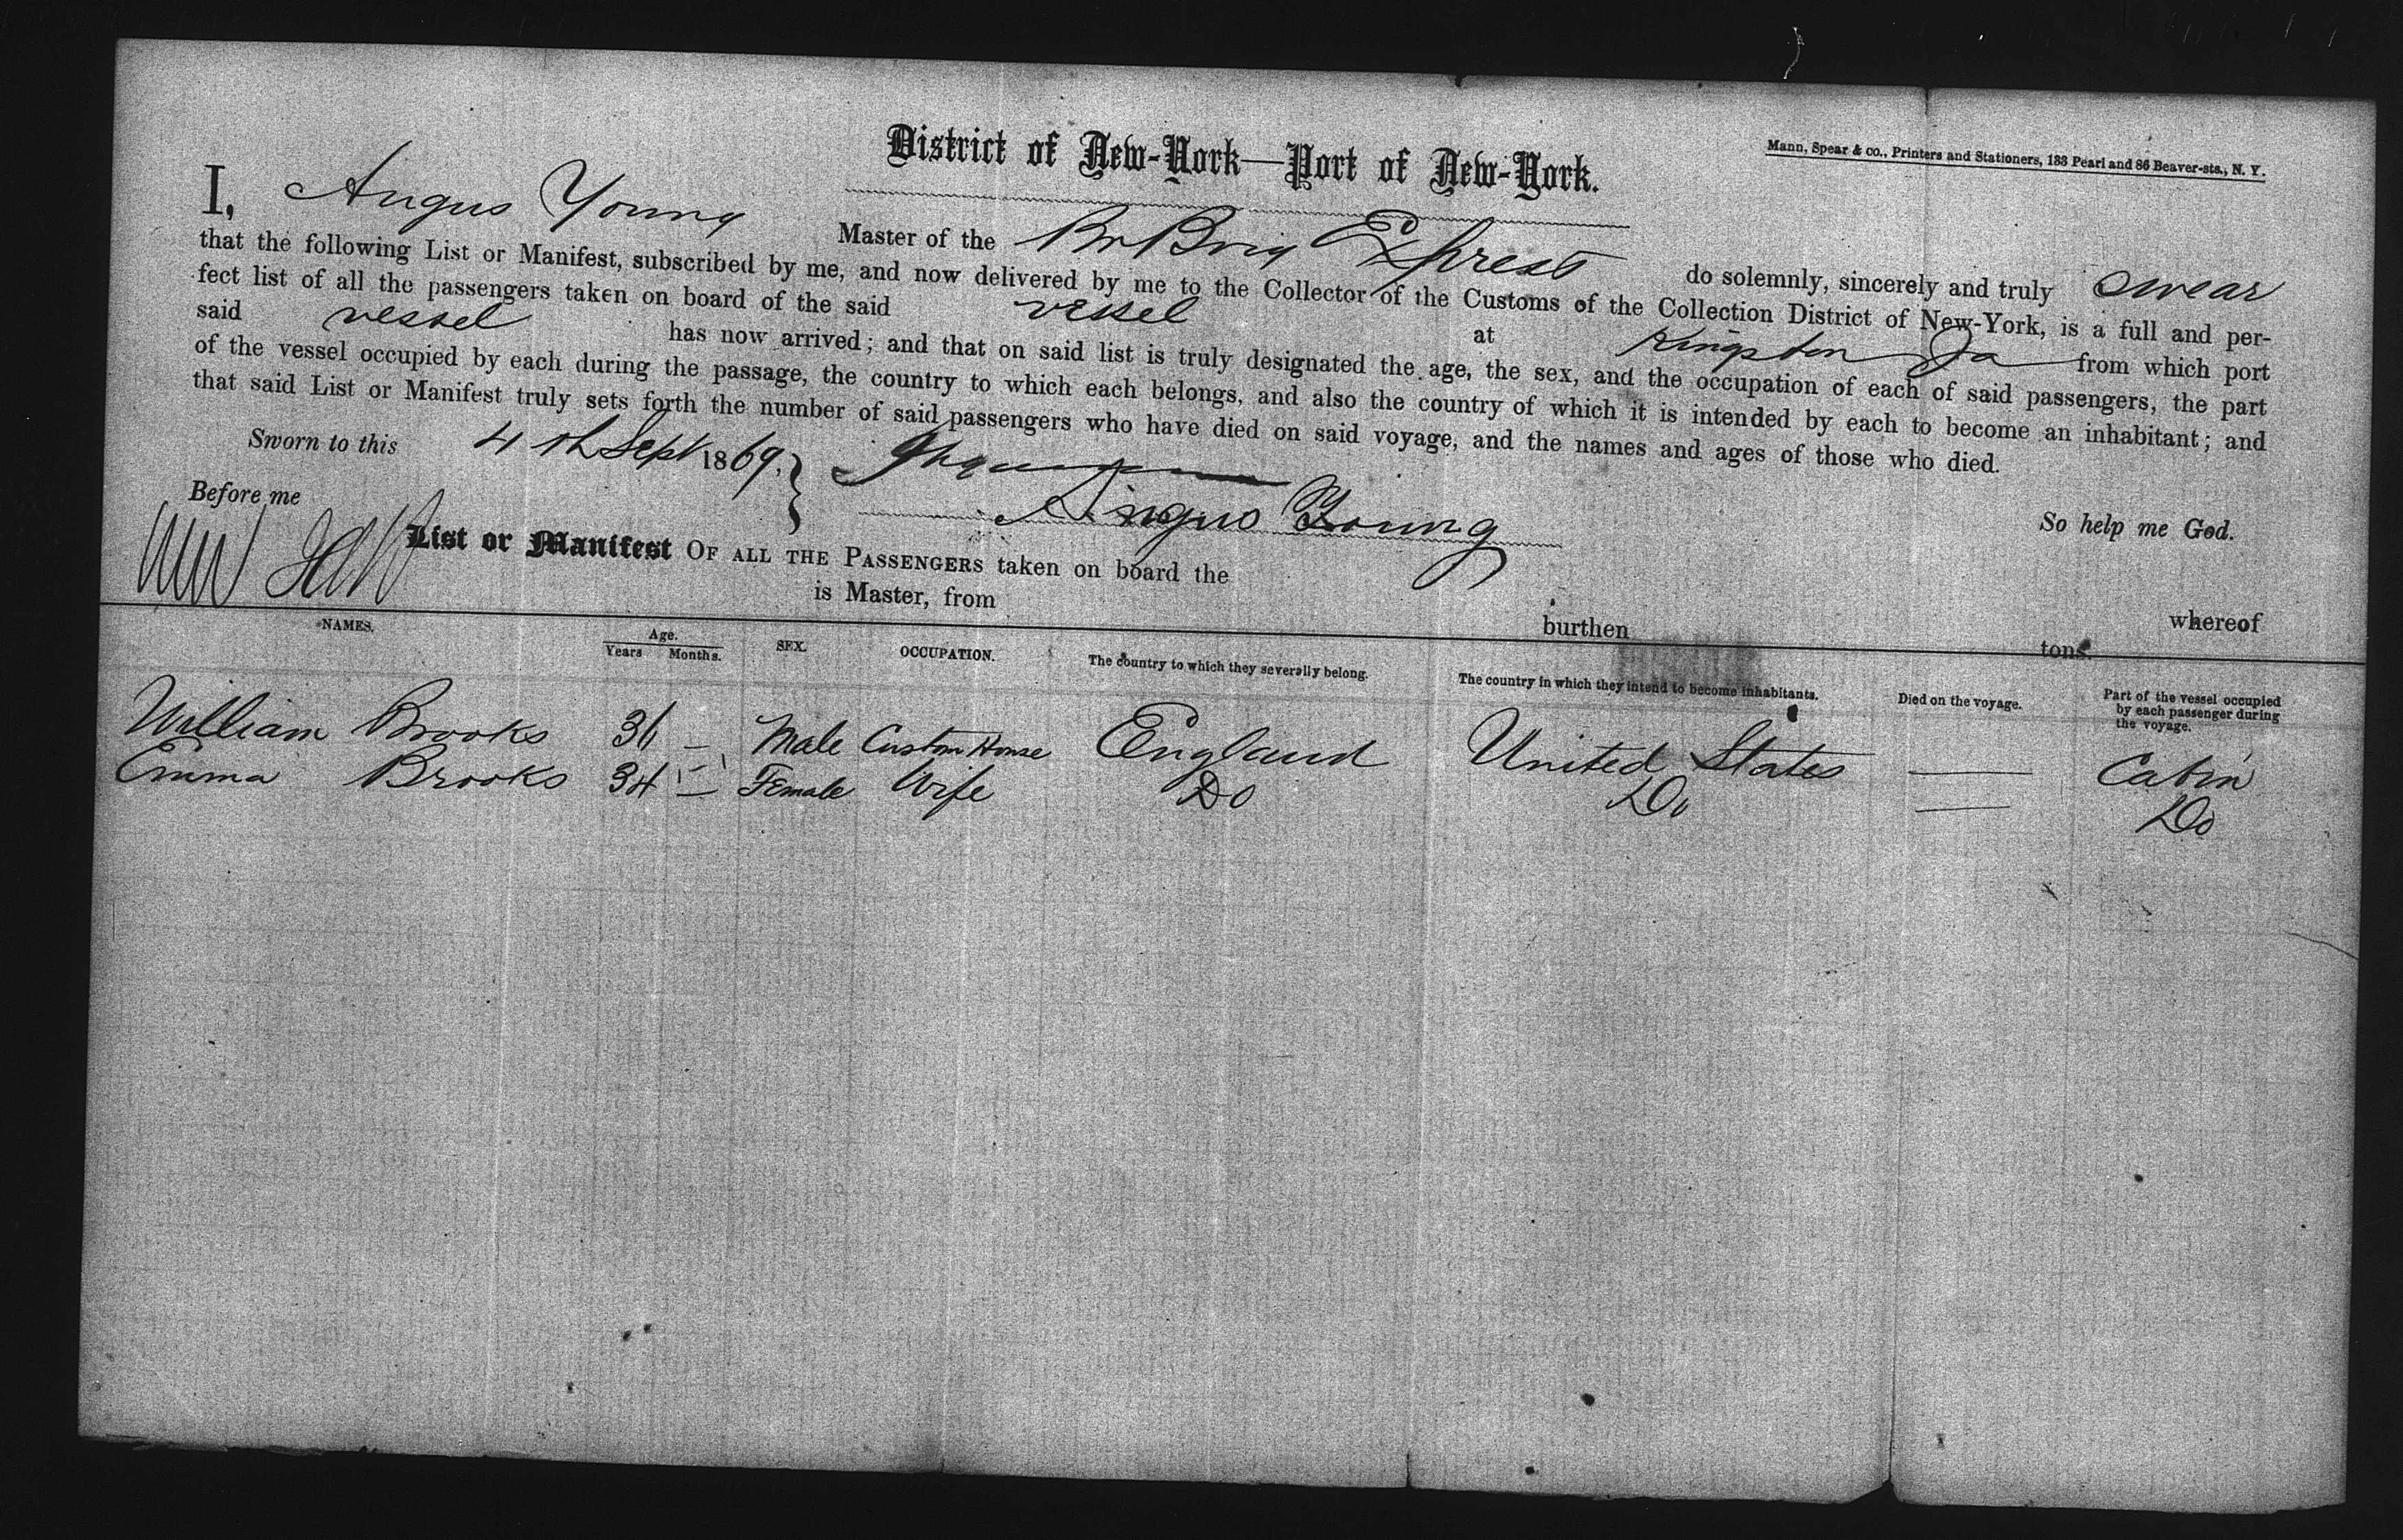 District of New-York—Port of New-York.
Mann, Spear & co., Printers and Stationers, 183 Pearl and 86 Beaver-sts., N. Y.
I, Angus Young Master of the Br Brig Express do solemnly, sincerely and truly swear
that the following List or Manifest, subscribed by me, and now delivered by me to the Collector of the Customs of the Collection District of New-York, is a full and per-
fect list of all the passengers taken on board of the said vessel at Kingston Ja from which port
said vessel has now arrived; and that on said list is truly designated the age, the sex, and the occupation of each of said passengers, the part
of the vessel occupied by each during the passage, the country to which each belongs, and also the country of which it is intended by each to become an inhabitant; and
that said List or Manifest truly sets forth the number of said passengers who have died on said voyage, and the names and ages of those who died.
Sworn to this 4th Sept 1869.
So help me God.
Before me
Angus Young
List or Manifest OF ALL THE PASSENGERS taken on board the whereof
is Master, from burthen tons.
NAMES. Age. Years Months. SEX. OCCUPATION. The country to which they severally belong. The country in which they intend to become inhabitants. Died on the voyage. Part of the vessel occupied by each passenger during the voyage.
William Brooks 36 — Male Custom House England United States — Cabin
Emma Brooks 34 — Female Wife Do Do — Do